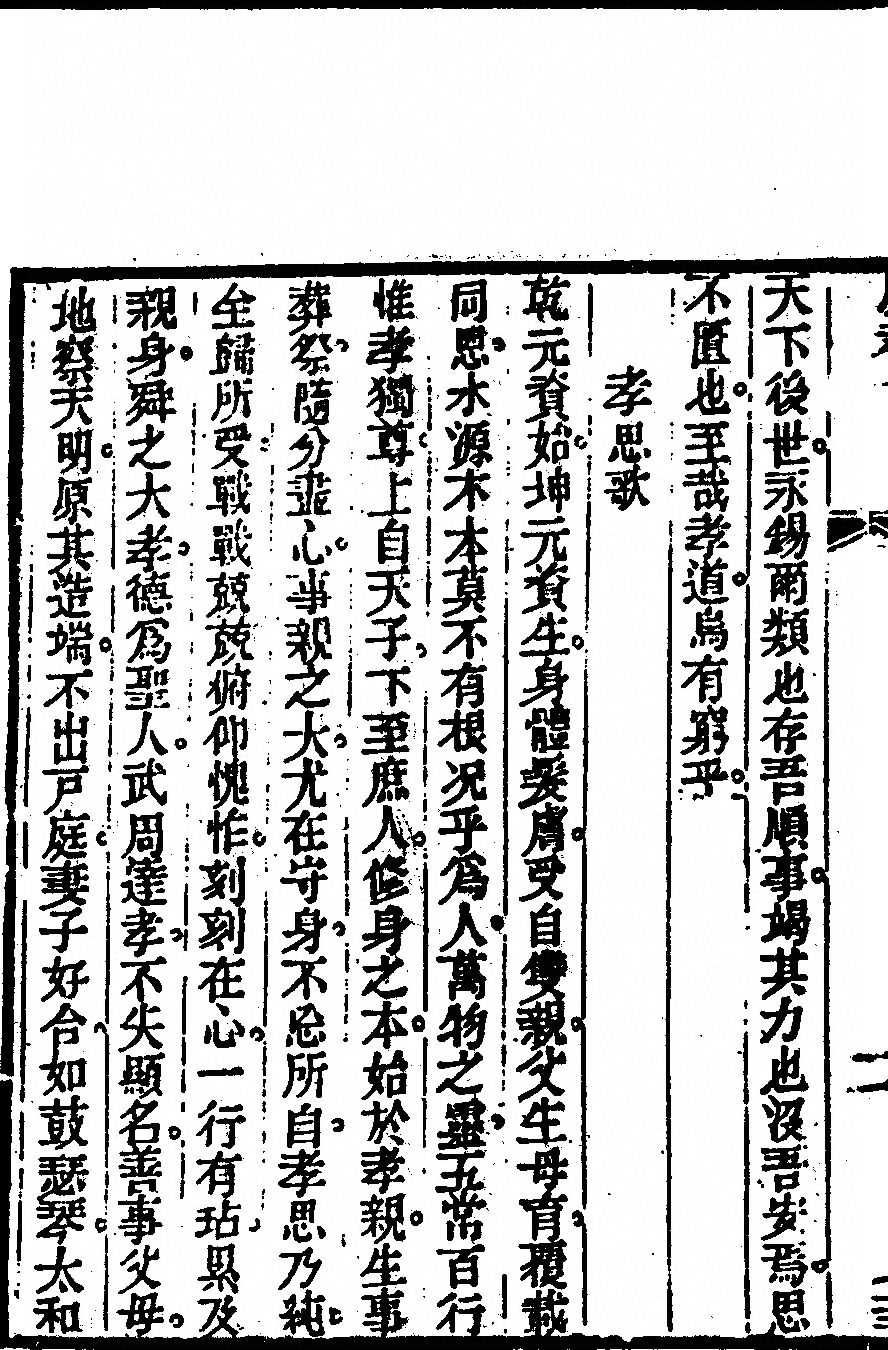 天下後世永錫爾類也存吾順事竭其力也沒吾安焉思
不匱也至哉孝道烏有窮乎
孝思歌
乾元資始坤元資生身體髮膚受自雙親父生母育覆載
同恩水源木本莫不有根况乎爲人萬物之靈五常百行
惟孝獨尊上自天子下至庶人修身之本始於孝親生事
葬祭隨分盡心事親之大尤在守身不忘所自孝思乃純
全歸所受戰戰兢兢俯仰愧怍刻刻在心一行有玷累及
親身舜之大孝德爲聖人武周達孝不失顯名善事父母
地察天明原其造端不出戸庭妻子好合如鼓瑟琴太和